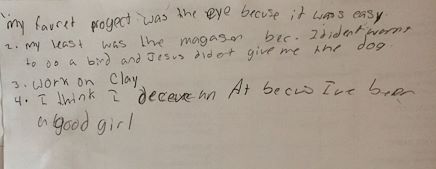 my favret progect was the eye becuse it was easy.
2. my least was the magason bec. I dident wonna
to do a bird and Jesus didet give me the dog
3. work on Clay
4. I think I deceve an At becus Ive been
a good girl